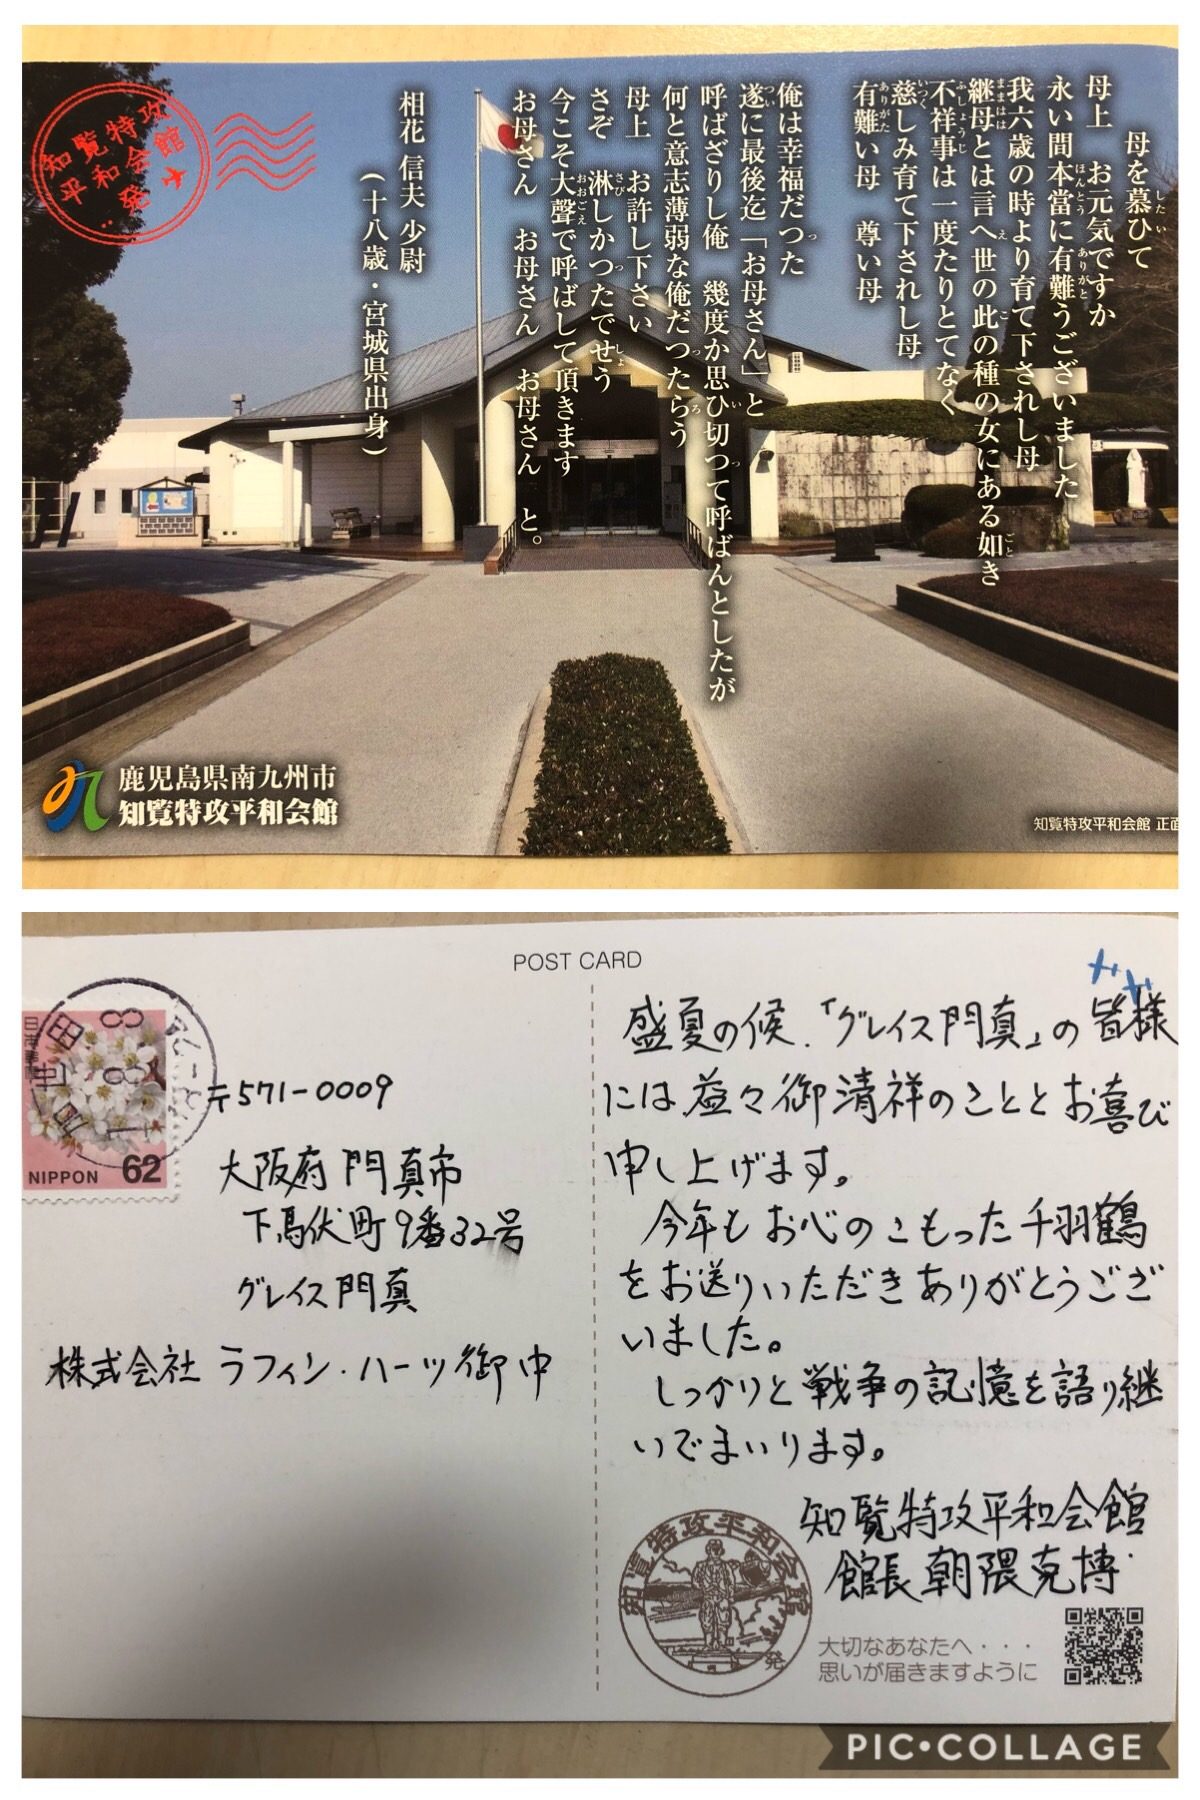 母を慕ひて
母上　お元気ですか
永い間本當に有難うございました
我六歳の時より育て下されし母
継母とは言へ世の此の種の女にある如き
不祥事は一度たりとてなく
慈しみ育て下されし母
有難い母　尊い母
俺は幸福だつた
遂に最後迄「お母さん」と
呼ばざりし俺　幾度か思ひ切つて呼ばんとしたが
何と意志薄弱な俺だつたらう
母上　お許し下さい
さぞ　淋しかつたでせう
今こそ大聲で呼ばして頂きます
お母さん　お母さん　お母さん　と。
相花 信夫 少尉
（十八歳・宮城県出身）
知覧特攻
平和会館
発
鹿児島県南九州市
知覧特攻平和会館
知覧特攻平和会館 正面
POST CARD
日本郵便
NIPPON 62
〒571-0009
大阪府門真市
下馬伏町9番32号
グレイス門真
株式会社 ラフィン・ハーツ御中
盛夏の候、「グレイス門真」の皆様
には益々御清祥のこととお喜び
申し上げます。
今年もお心のこもった千羽鶴
をお送りいただきありがとうござ
いました。
しっかりと戦争の記憶を語り継
いでまいります。
知覧特攻平和会館
館長 朝隈克博
知覧特攻平和会館
発
大切なあなたへ・・・
思いが届きますように
PIC•COLLAGE